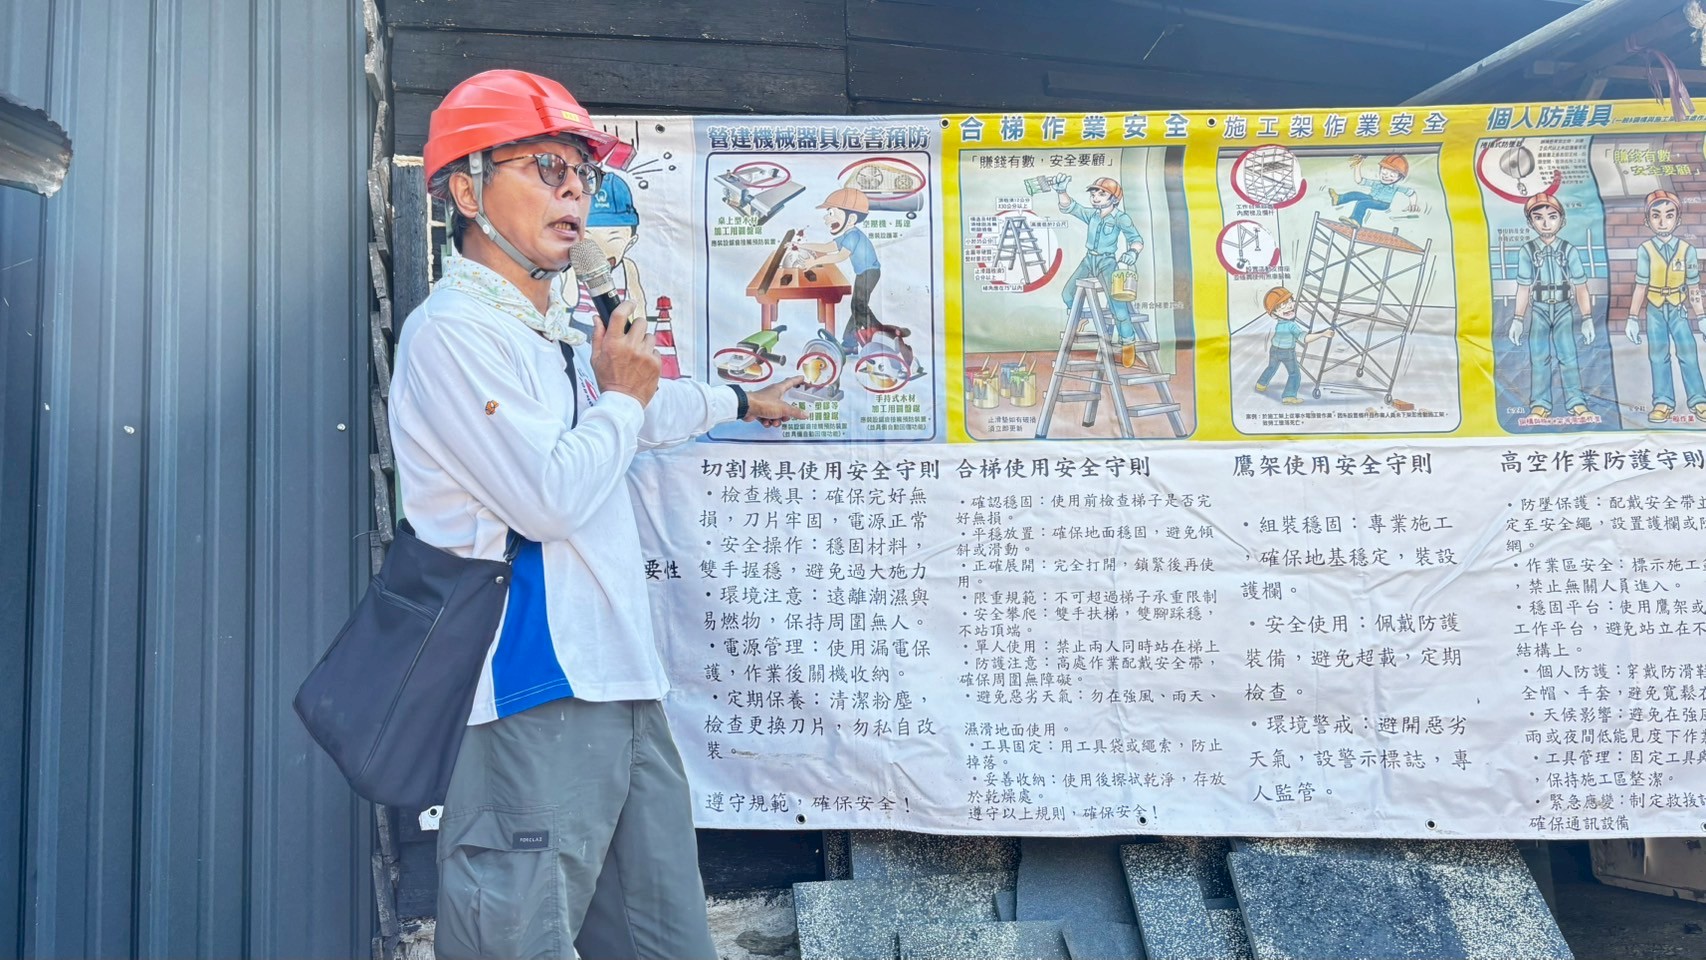 營建機械器具危害預防
桌上型木材
加工用圓盤鋸
應裝設鋸齒接觸預防裝置。
空壓機、馬達
應裝設護罩。
手持式木材
加工用圓盤鋸
切割機具使用安全守則
・檢查機具：確保完好無
損，刀片牢固，電源正常
・安全操作：穩固材料，
雙手握穩，避免過大施力
・環境注意：遠離潮濕與
易燃物，保持周圍無人。
・電源管理：使用漏電保
護，作業後關機收納。
・定期保養：清潔粉塵，
檢查更換刀片，勿私自改
裝。
遵守規範，確保安全！
要性
合梯作業安全
「賺錢有數，安全要顧」
合梯使用安全守則
・確認穩固：使用前檢查梯子是否完
好無損。
・平穩放置：確保地面穩固，避免傾
斜或滑動。
・正確展開：完全打開，鎖緊後再使
用。
・限重規範：不可超過梯子承重限制
・安全攀爬：雙手扶梯，雙腳踩穩，
不站頂端。
・單人使用：禁止兩人同時站在梯上
・防護注意：高處作業配戴安全帶，
確保周圍無障礙。
・避免惡劣天氣：勿在強風、雨天、
濕滑地面使用。
・工具固定：用工具袋或繩索，防止
掉落。
・妥善收納：使用後擦拭乾淨，存放
於乾燥處。
遵守以上規則，確保安全！
施工架作業安全
鷹架使用安全守則
・組裝穩固：專業施工
，確保地基穩定，裝設
護欄。
・安全使用：佩戴防護
裝備，避免超載，定期
檢查。
・環境警戒：避開惡劣
天氣，設警示標誌，專
人監管。
個人防護具
「賺錢有數
安全要顧」
高空作業防護守則
・防墜保護：配戴安全帶
定至安全繩，設置護欄或
網。
・作業區安全：標示施工
，禁止無關人員進入。
・穩固平台：使用鷹架或
工作平台，避免站立在不
結構上。
・個人防護：穿戴防滑鞋
全帽、手套，避免寬鬆
・天候影響：避免在強風
雨或夜間低能見度下作
・工具管理：固定工具
，保持施工區整潔。
・緊急應變：制定救援
確保通訊設備